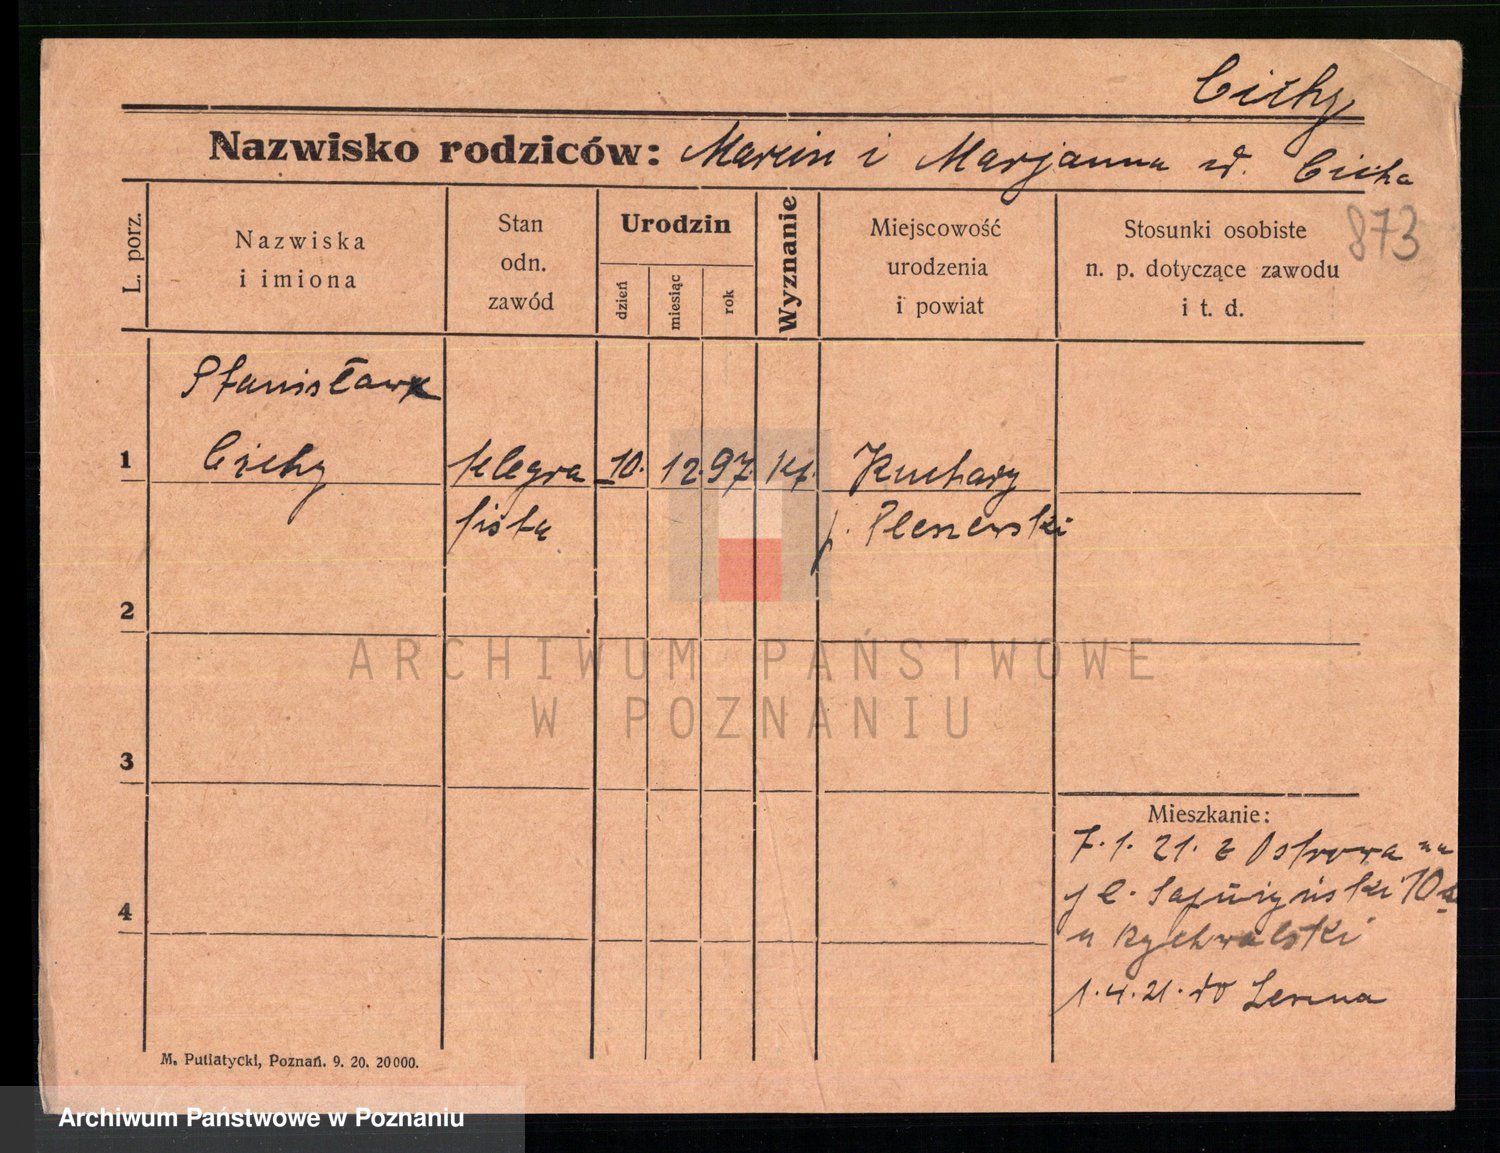 Cichy
Nazwisko rodziców: Marcin i Marjanna zd. Cicha
873
L. porz.
Nazwiska
i imiona
Stan
odn.
zawód
Urodzin
dzień
miesiąc
rok
Wyznanie
Miejscowość
urodzenia
i powiat
Stosunki osobiste
n. p. dotyczące zawodu
i t. d.
Stanisław
1 Cichy telegra 10. 12. 97. kt. Kuchary
fista p. Pleszewski
2
3
4
Mieszkanie:
7.1.21. z Ostrowa na
10
u Rychwalski
1.4.21. do
M. Putiatycki, Poznań. 9. 20. 20000.
ARCHIWUM PAŃSTWOWE
W POZNANIU
Archiwum Państwowe w Poznaniu